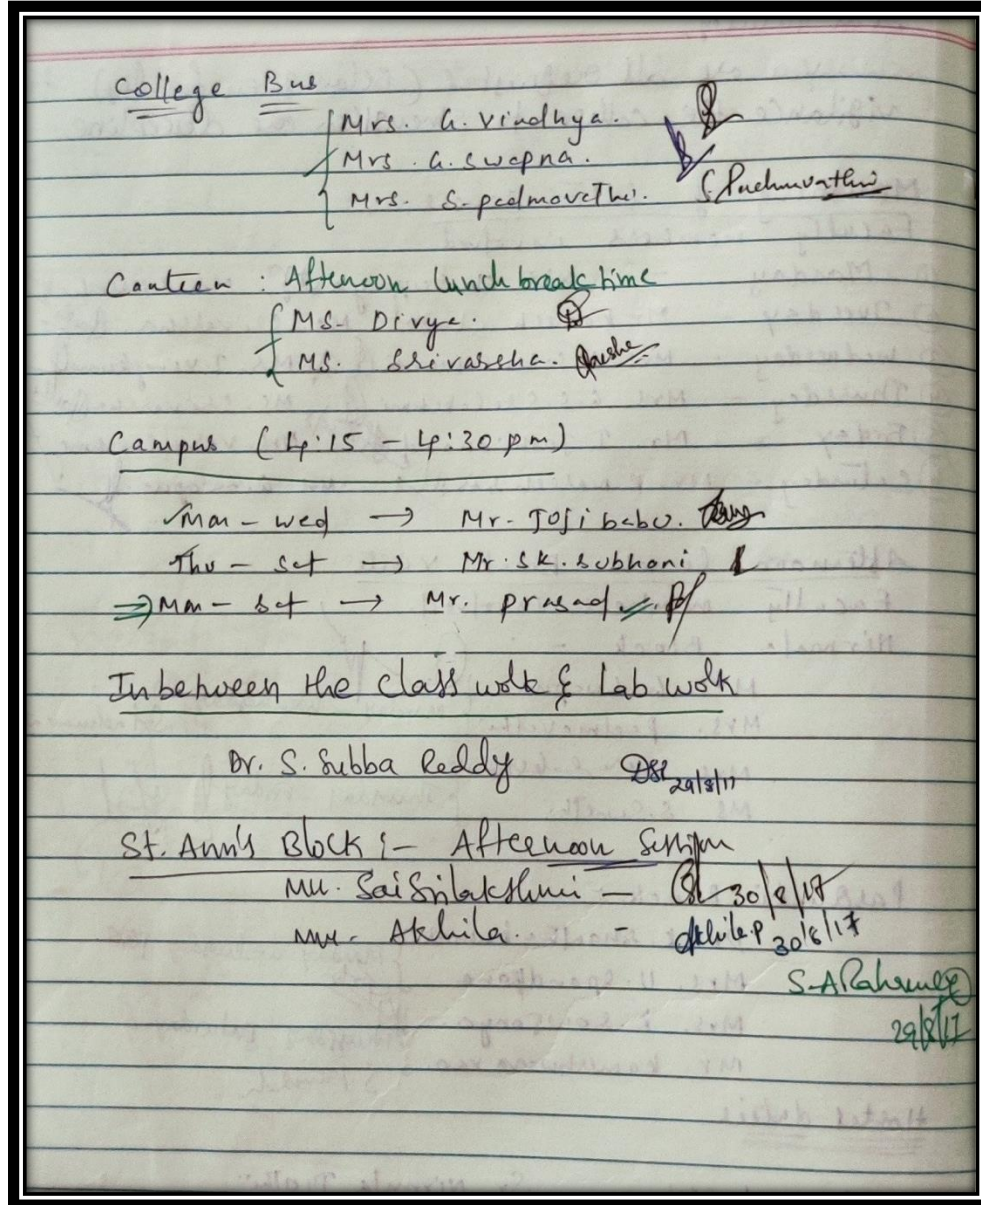 College Bus
Mrs. G. Vindhya.
Mrs. G. Swapna.
Mrs. S. padmavathi. S. Padmavathi
Canteen : Afternoon lunch break time
MS. Divya.
MS. Srivarsha.
Campus (4:15 - 4:30 pm)
Mon - wed → Mr. Joji babu.
Thu - Sat → Mr. SK. Subhani
⇒ Mon - Sat → Mr. prasad
Inbetween the class work & Lab work
Dr. S. Subba Reddy 29/8/17
St. Ann's Block :- Afternoon Session
Mrs. Sai Srilakshmi - 30/8/17
Mrs. Akhila - Akhila.P 30/8/17
29/8/17